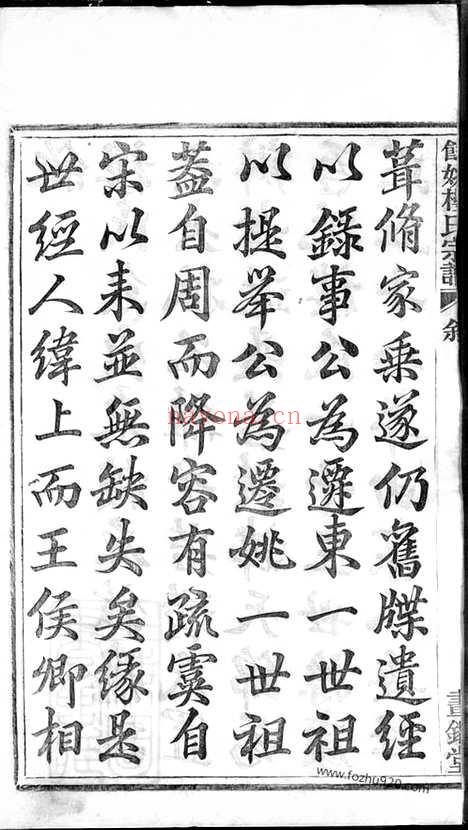 葺脩家乗遂仍舊牒遺經
以錄事公為遷東一世祖
以提舉公為遷姚一世祖
葢自周而降容有疏虞自
宋以来並無缺失矣緣是
世經人緯上而王侯卿相
氏宗譜
nayona.cn
www.fozhu920.com